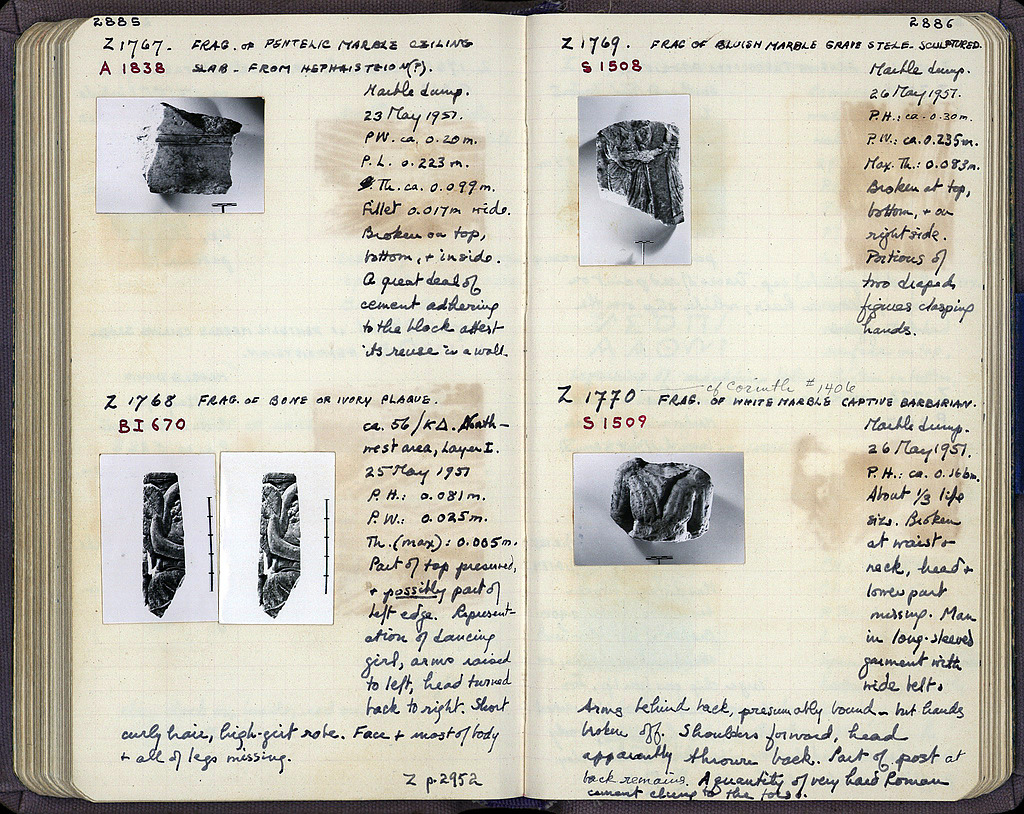 2885
Z 1767. FRAG. OF PENTELIC MARBLE CEILING
A 1838 SLAB - FROM HEPHAISTEION(?).
Marble dump.
23 May 1951.
P.W. ca. 0.20 m.
P.L. 0.223 m.
Th. ca. 0.099 m.
Fillet 0.017m wide.
Broken on top,
bottom, + inside.
A great deal of
cement adhering
to the block attest
its reuse in a wall.
Z 1768 FRAG. OF BONE OR IVORY PLAQUE.
BI 670
ca. 56/ΚΔ. North-
west area, Layer I.
25 May 1951
P.H.: 0.081 m.
P.W.: 0.025 m.
Th. (max): 0.005 m.
Part of top preserved,
+ possibly part of
left edge. Represent-
ation of dancing
girl, arms raised
to left, head turned
back to right. Short
curly hair, high-girt robe. Face + most of body
+ all of legs missing.
Z p. 2952
2886
Z 1769. FRAG OF BLUISH MARBLE GRAVE STELE - SCULPTURED.
S 1508
Marble dump.
26 May 1951.
P.H.: ca. 0.30m.
P.W.: ca. 0.235m.
Max. Th.: 0.083m.
Broken at top,
bottom, + on
right side.
Portions of
two draped
figures clasping
hands.
cf Corinth #1406
Z 1770 FRAG. OF WHITE MARBLE CAPTIVE BARBARIAN.
S 1509
Marble dump.
26 May 1951.
P.H.: ca. 0.166m.
About 1/3 life
size. Broken
at waist +
neck, head +
lower part
missing. Man
in long-sleeved
garment with
wide belt.
Arms behind back, presumably bound - but hands
broken off. Shoulders forward, head
apparently thrown back. Part of post at
back remains. A quantity of very hard Roman
cement clung to the torso.